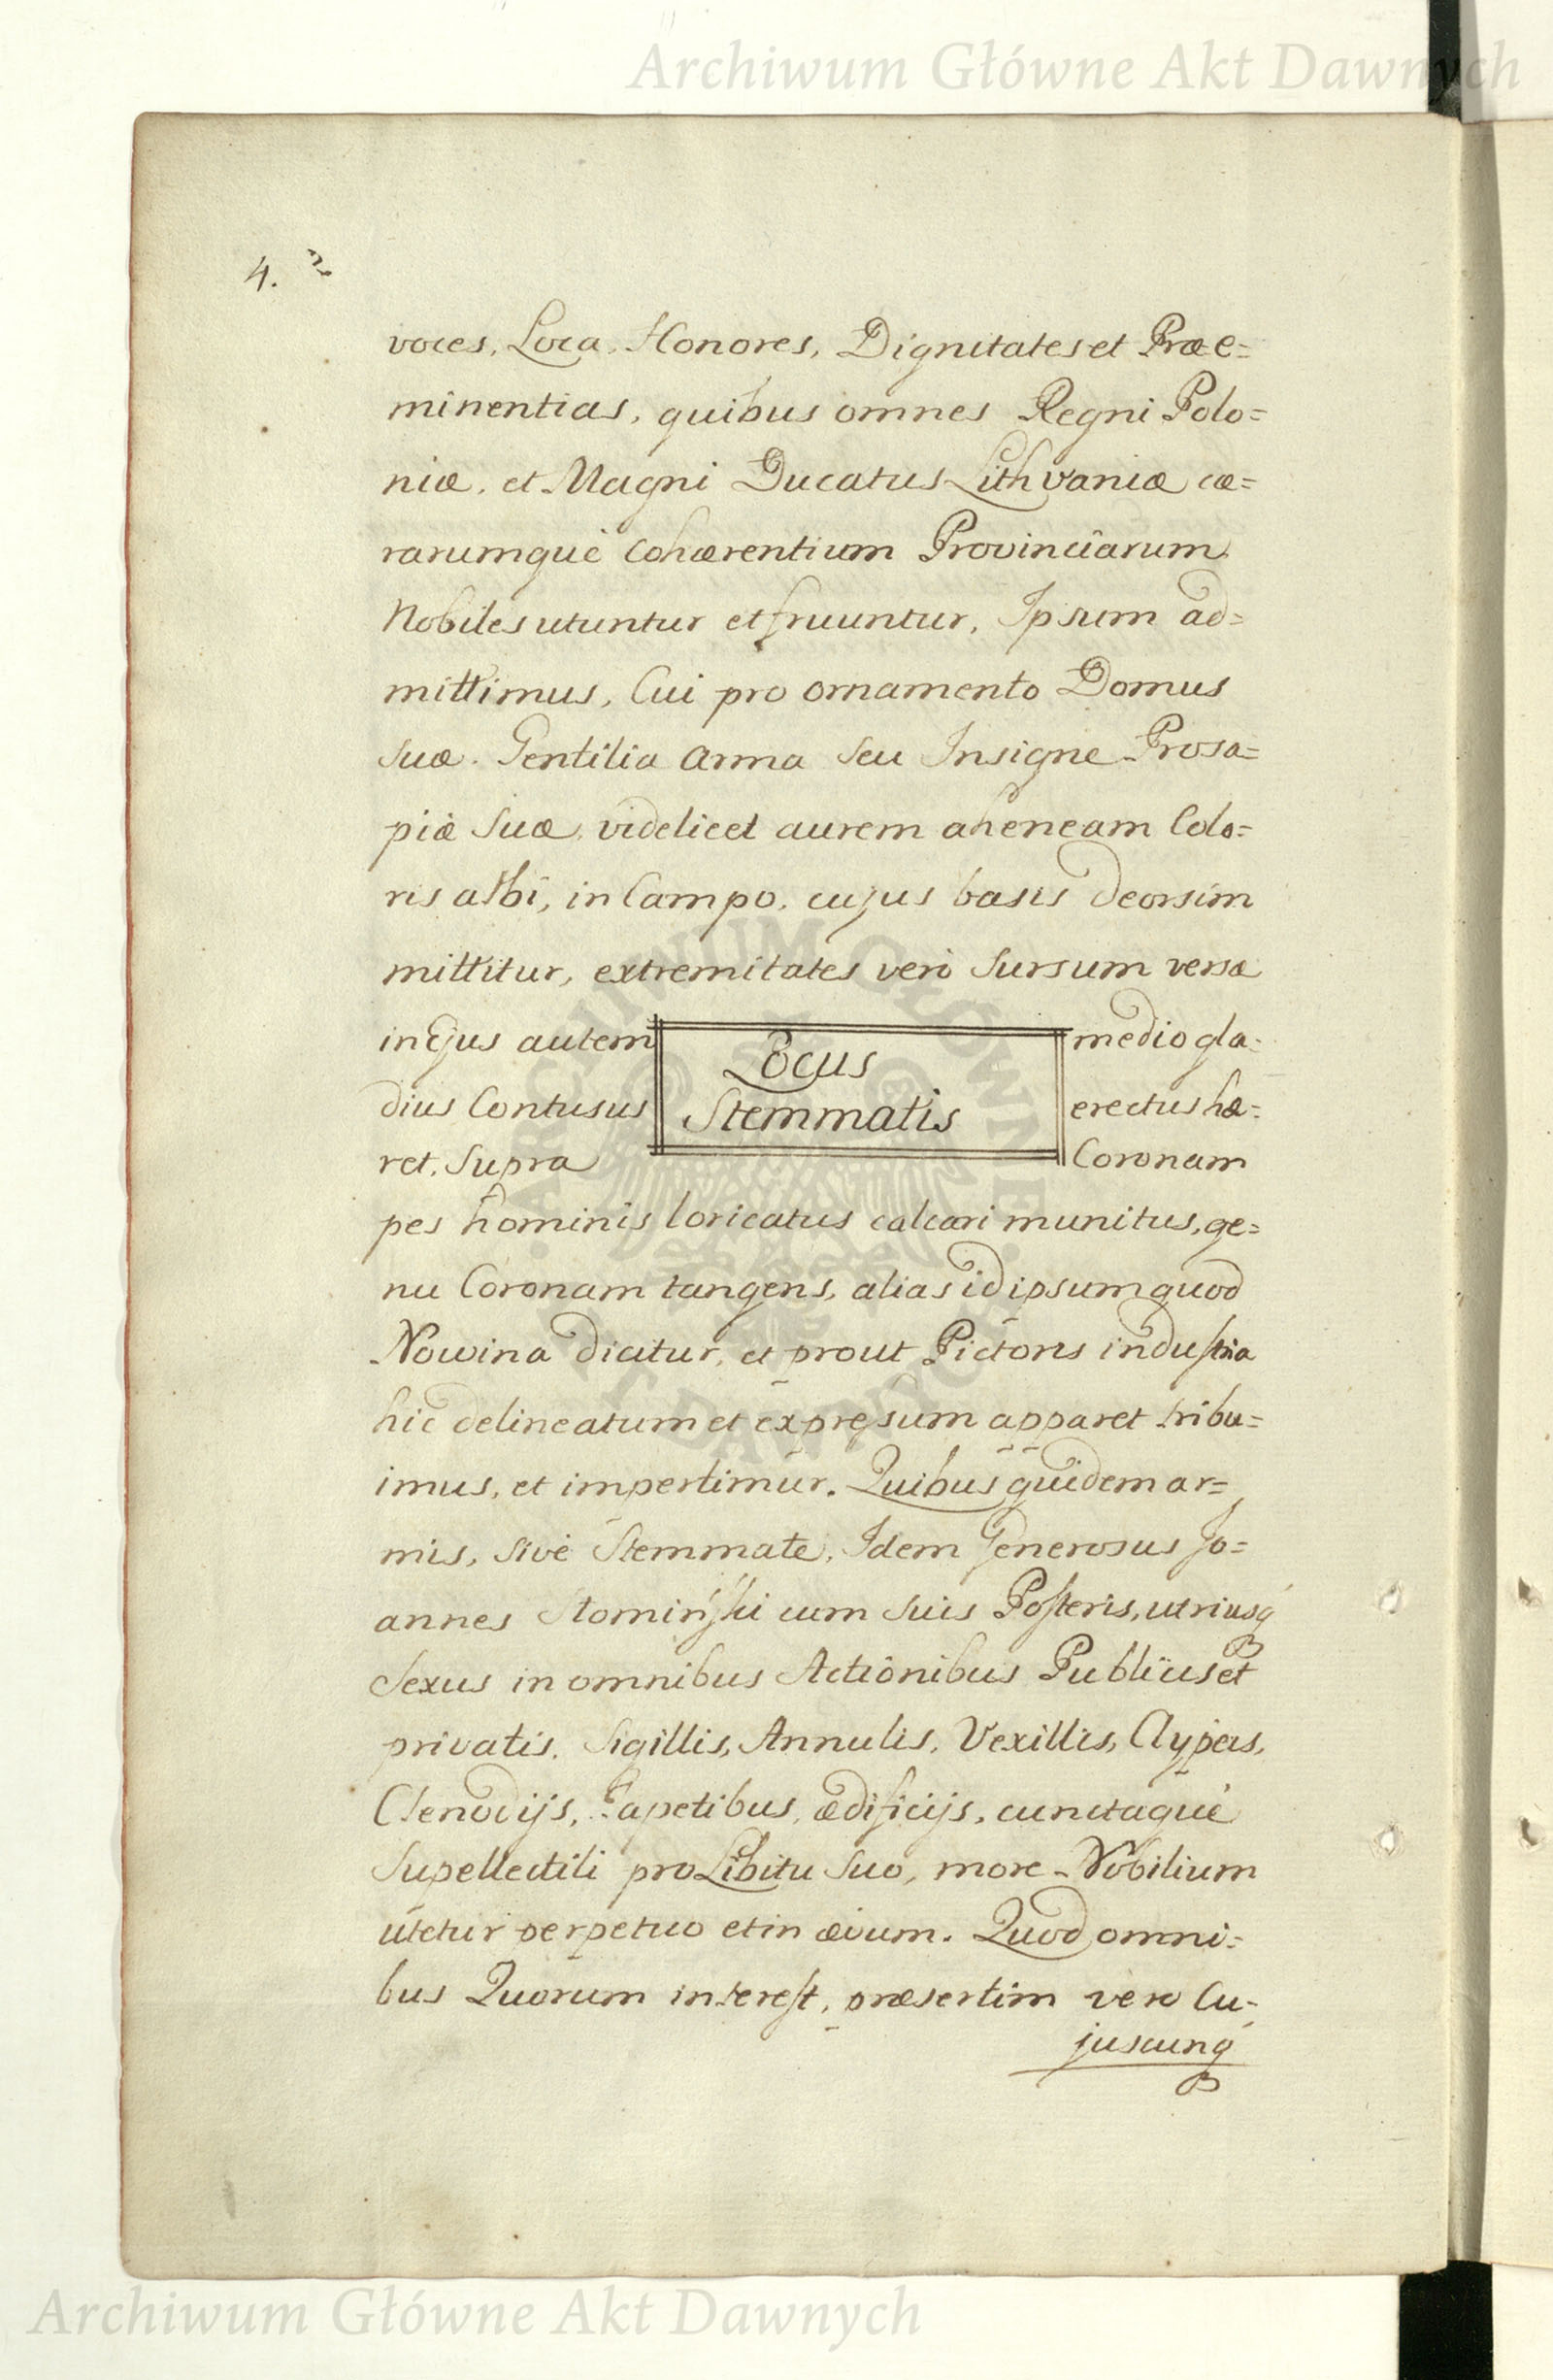 Archiwum Główne Akt Dawnych
4.
voces, Loca, Honores, Dignitates et Præe=
minentias, quibus omnes Regni Polo=
niæ, et Magni Ducatus Lithvaniæ cæ=
rarumque cohærentium Provinciarum
Nobiles utuntur et fruuntur, Ipsum ad=
mittimus, Cui pro ornamento Domus
suæ. Gentilia Arma seu Insigne Prosa=
piæ suæ, videlicet aurem aheneam Colo=
ris albi, in Campo, cujus basis deorsim
mittitur, extremitates vero sursum versæ
in Ejus autem medio gla=
Locus
dius Contusus erectus hæ=
Stemmatis
ret, Supra Coronam
pes hominis loricatus calcari munitus, ge=
nu Coronam tangens, alias id ipsum quod
Nowina dicitur, et prout Pictoris industria
hic delineatum et expressum apparet tribu=
imus, et impertimur. Quibus quidem ar=
mis, sive Stemmate, Idem Generosus Jo=
annes Słomiński cum suis Posteris, utriusq
Sexus in omnibus Actionibus Publicis et
privatis, Sigillis, Annulis, Vexillis, Clypeis,
Clenodijs, Tapetibus, ædificijs, cunctaque
Supellectili pro Libitu suo, more Nobilium
utetur perpetuo et in ævum. Quod omni=
bus Quorum interest, præsertim vero Cu=
juscunq
Archiwum Główne Akt Dawnych